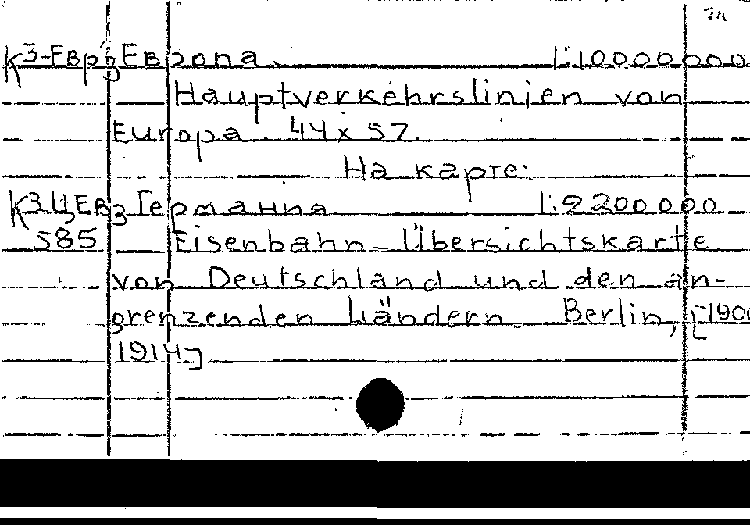 К3-Евр3 Европа. 1:10000000
Hauptverkehrslinien von
Europa. 44x57.
На карте:
К3ЦЕв3 Германия 1:2200000
585 Eisenbahn-Übersichtskarte
von Deutschland und den an-
grenzenden Ländern. Berlin, [190
1914]